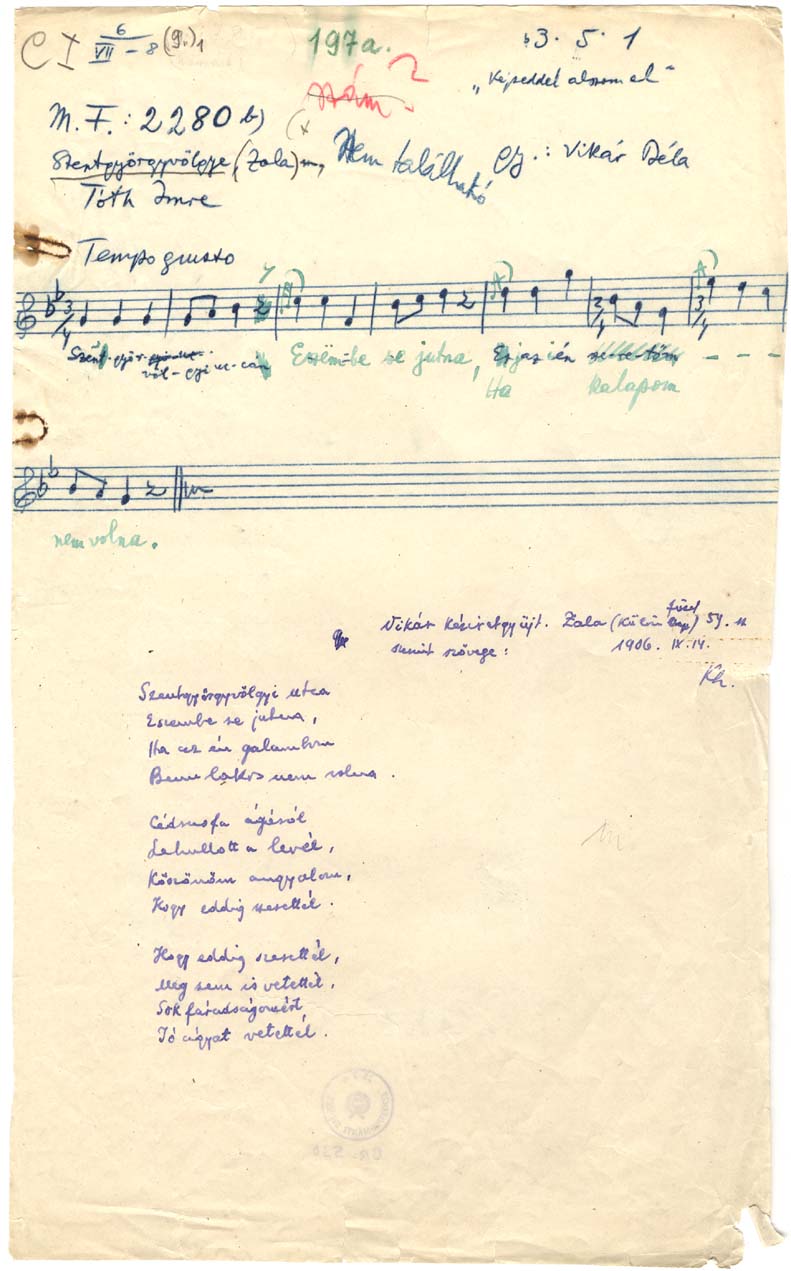 C I 6/VII - 8 (9.)1
197a.
b3 · 5 · 1
szám ?
"Képeddel alszom el"
M. F.: 2280 b)
Szentgyörgyvölgye, (Zala) m, Nem található Gy.: Vikár Béla
Tóth Imre
Tempo giusto
3/4 2/4 3/4
Szent-györ-
völ-gyi u-cán Eszëm-be se jutna, az én - - - -
Ha kalapom
nem volna.
Vikár kéziratgyűjt. Zala (Külön füzet) 59.
szerint szövege: 1906. IX. 14.
Kh.
Szentgyörgyvölgyi utca
Eszembe se jutna,
Ha az én galambom
Benne lakos nem volna.
Cédrusfa ágáról
Lehullott a levél,
Köszönöm angyalom,
Hogy eddig szerettél.
Hogy eddig szerettél,
Meg sem is vetettél,
Sok fáradságomért
Jó ágyat vetettél.